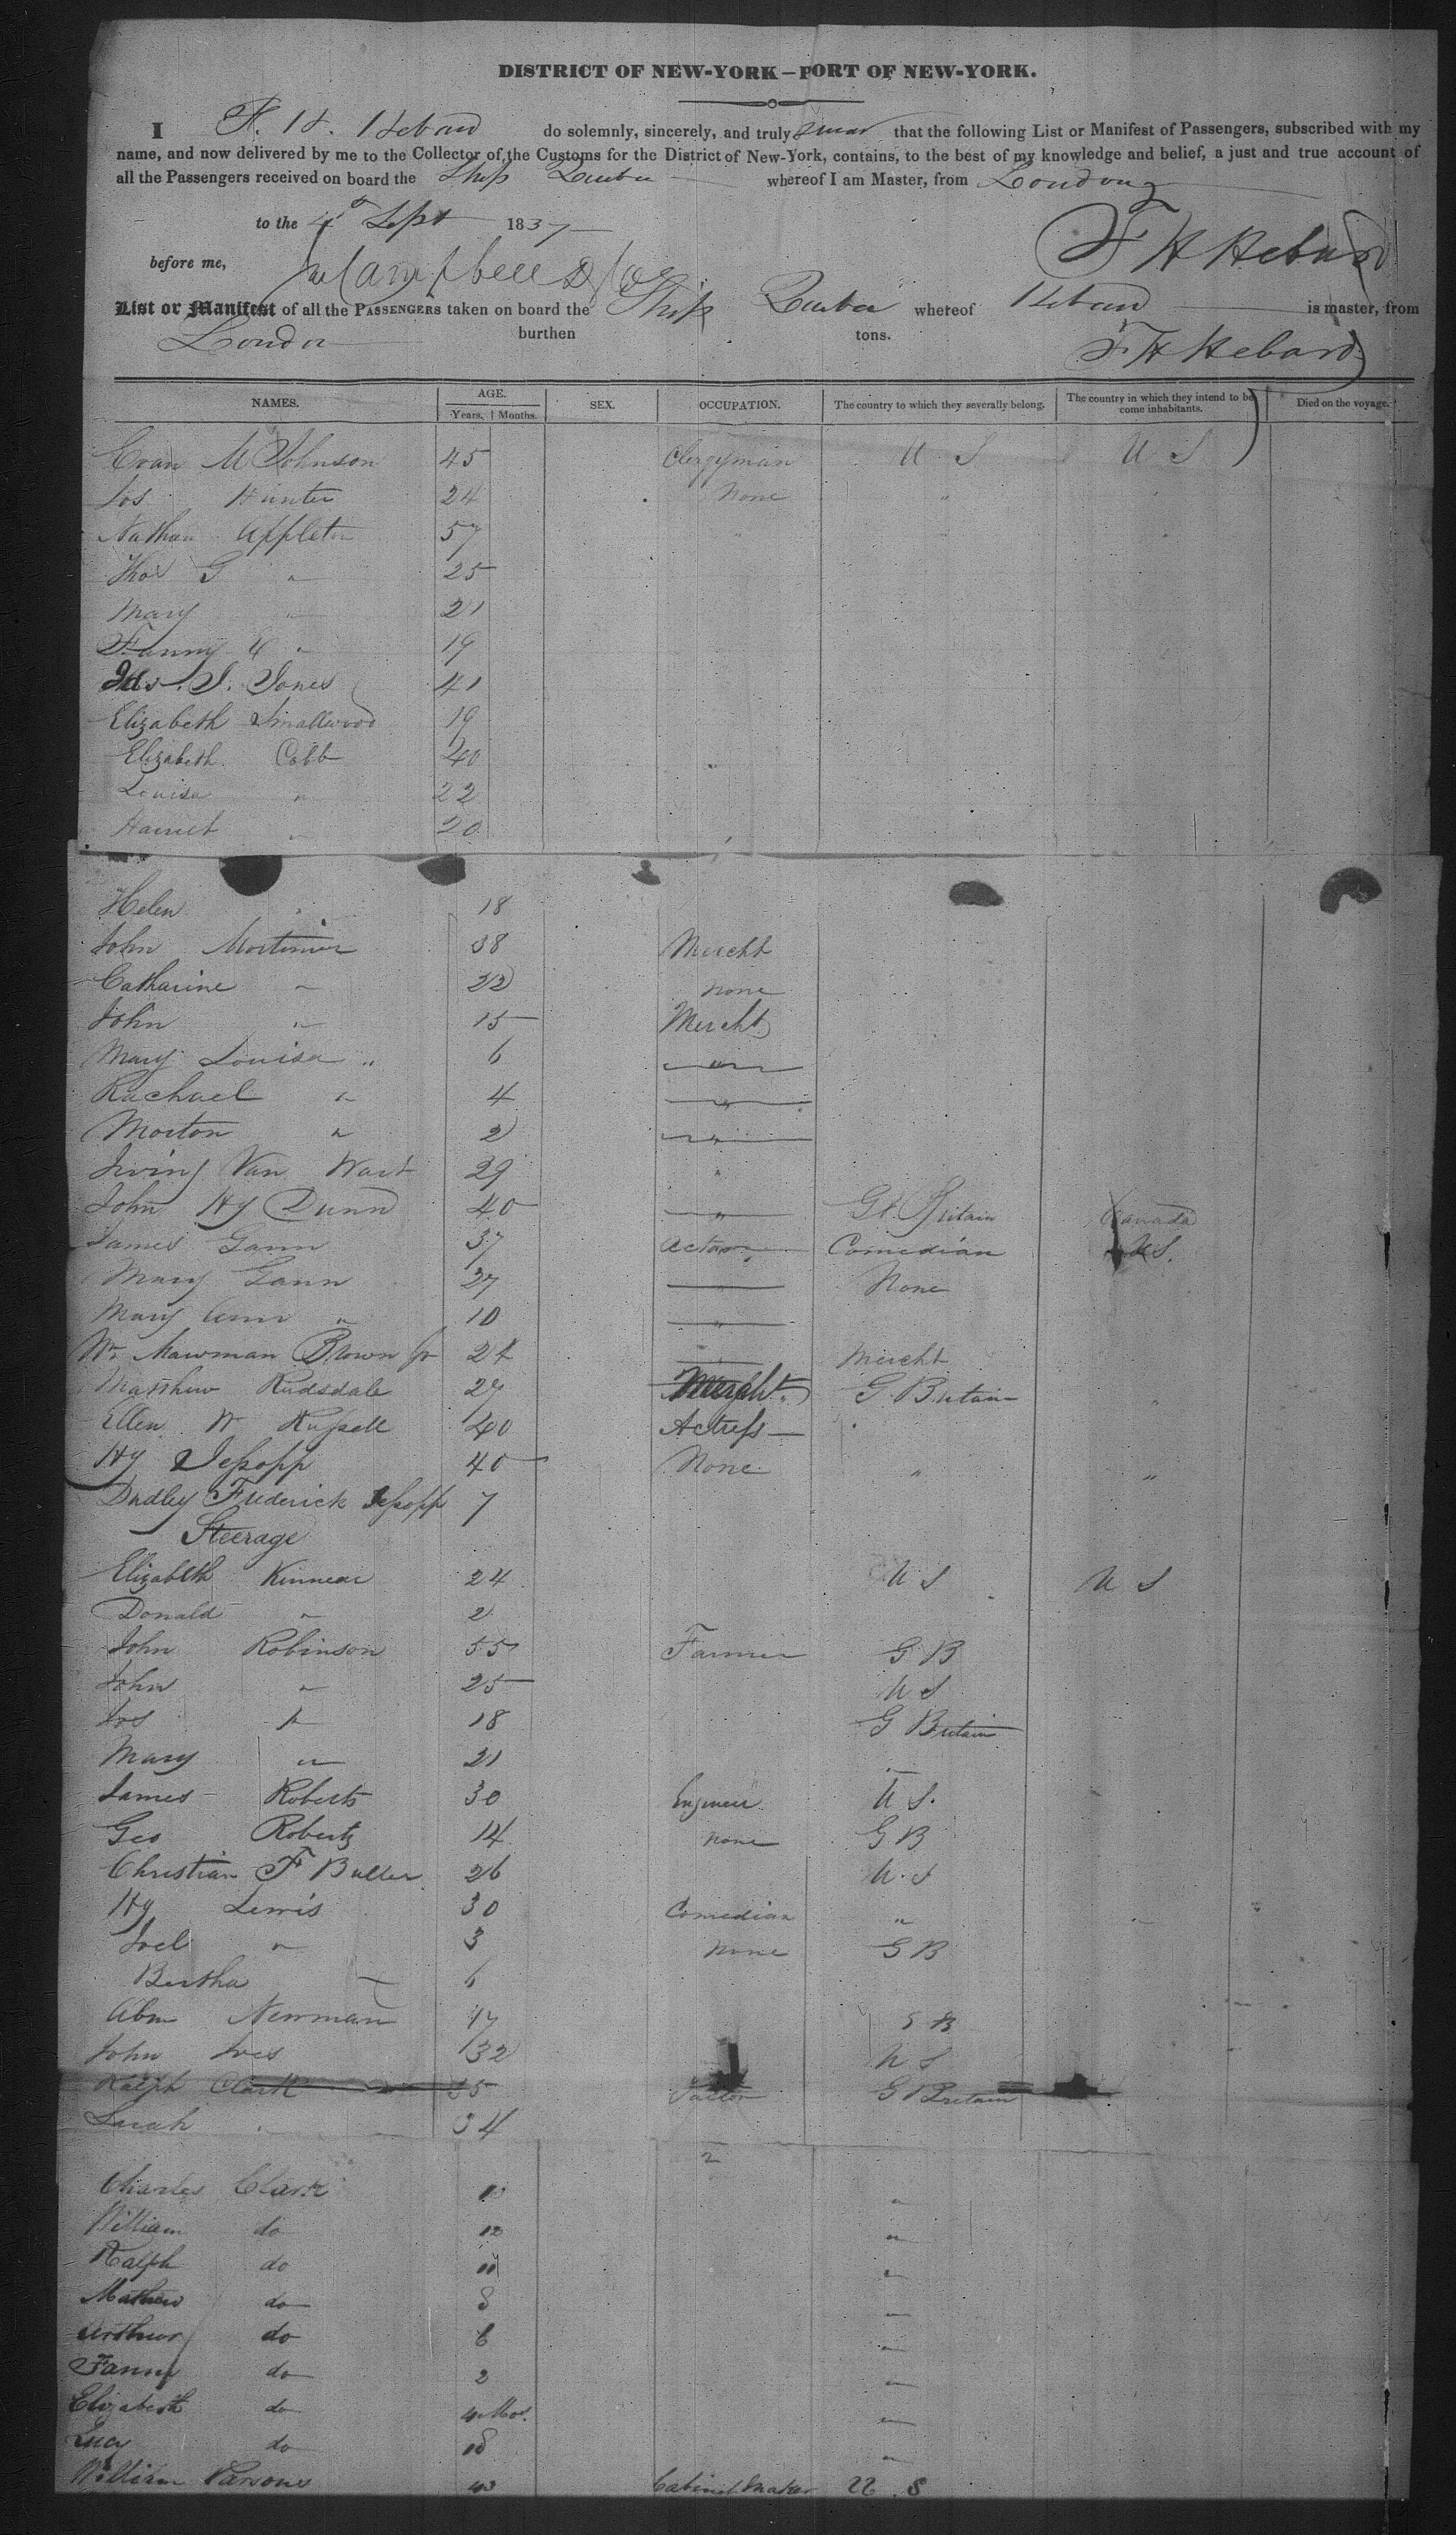 DISTRICT OF NEW-YORK—PORT OF NEW-YORK.
I F. H. Hebard do solemnly, sincerely, and truly swear that the following List or Manifest of Passengers, subscribed with my
name, and now delivered by me to the Collector of the Customs for the District of New-York, contains, to the best of my knowledge and belief, a just and true account of
all the Passengers received on board the Ship whereof I am Master, from London
to the 4 Sept 1837
before me, F H Hebard
List or Manifest of all the PASSENGERS taken on board the Ship whereof Hebard is master, from
London burthen tons. F. H Hebard
NAMES. AGE. Years. Months. SEX. OCCUPATION. The country to which they severally belong. The country in which they intend to become inhabitants. Died on the voyage.
Evan M Johnson 45 Clergyman U S U S
Jos Hunter 24 None "
Nathan Appleton 57 "
Thos G " 25
Mary " 21
Fanny " 19
S. Jones 41
Elizabeth Smallwood 19
Elizabeth Cobb 40 "
Louisa " 22
Harriet " 20
Helen " 18
John Mortimer 38 Mercht
Catharine " 22 none
John " 15 Mercht
Mary Louisa " 6 "
Rachael " 4 "
Morton " 2 "
Irving Van Wart 29 "
John Hy Dunn 40 " Gt. Britain Canada
James Gann 37 Actor Comedian U S.
Mary Gann 27 " None
Mary Ann " 10 "
Wm Mawman Brown Jr 24 Mercht
Matthew Rudsdale 27 Mercht. G. Britain "
Ellen W Russell 40 Actress
Hy Jessopp 40 None " "
Dudley Frederick Jessopp 7
Steerage
Elizabeth Kinnear 24 U S U S
Donald " 2
John Robinson 55 Farmer G B
John " 25 U S
Jos " 18 G Britain
Mary " 21
James Roberts 30 Engineer U S.
Geo Roberts 14 none G B
Christian F Buller 26 U. S
Hy Lewis 30 Comedian " "
Joel " 3 none G B
Bertha 6
Abm Newman 47 G B
John Ives 32 U S
Ralph Clark 35 G Britain
Sarah " 34
Charles Clark "
William do 12 "
Ralph do "
Mathew do 8 "
Arthur do 6 "
Fanny do 2 "
Elizabeth do 4 Mos. "
Lucy do "
William Parsons Cabinet Maker U S